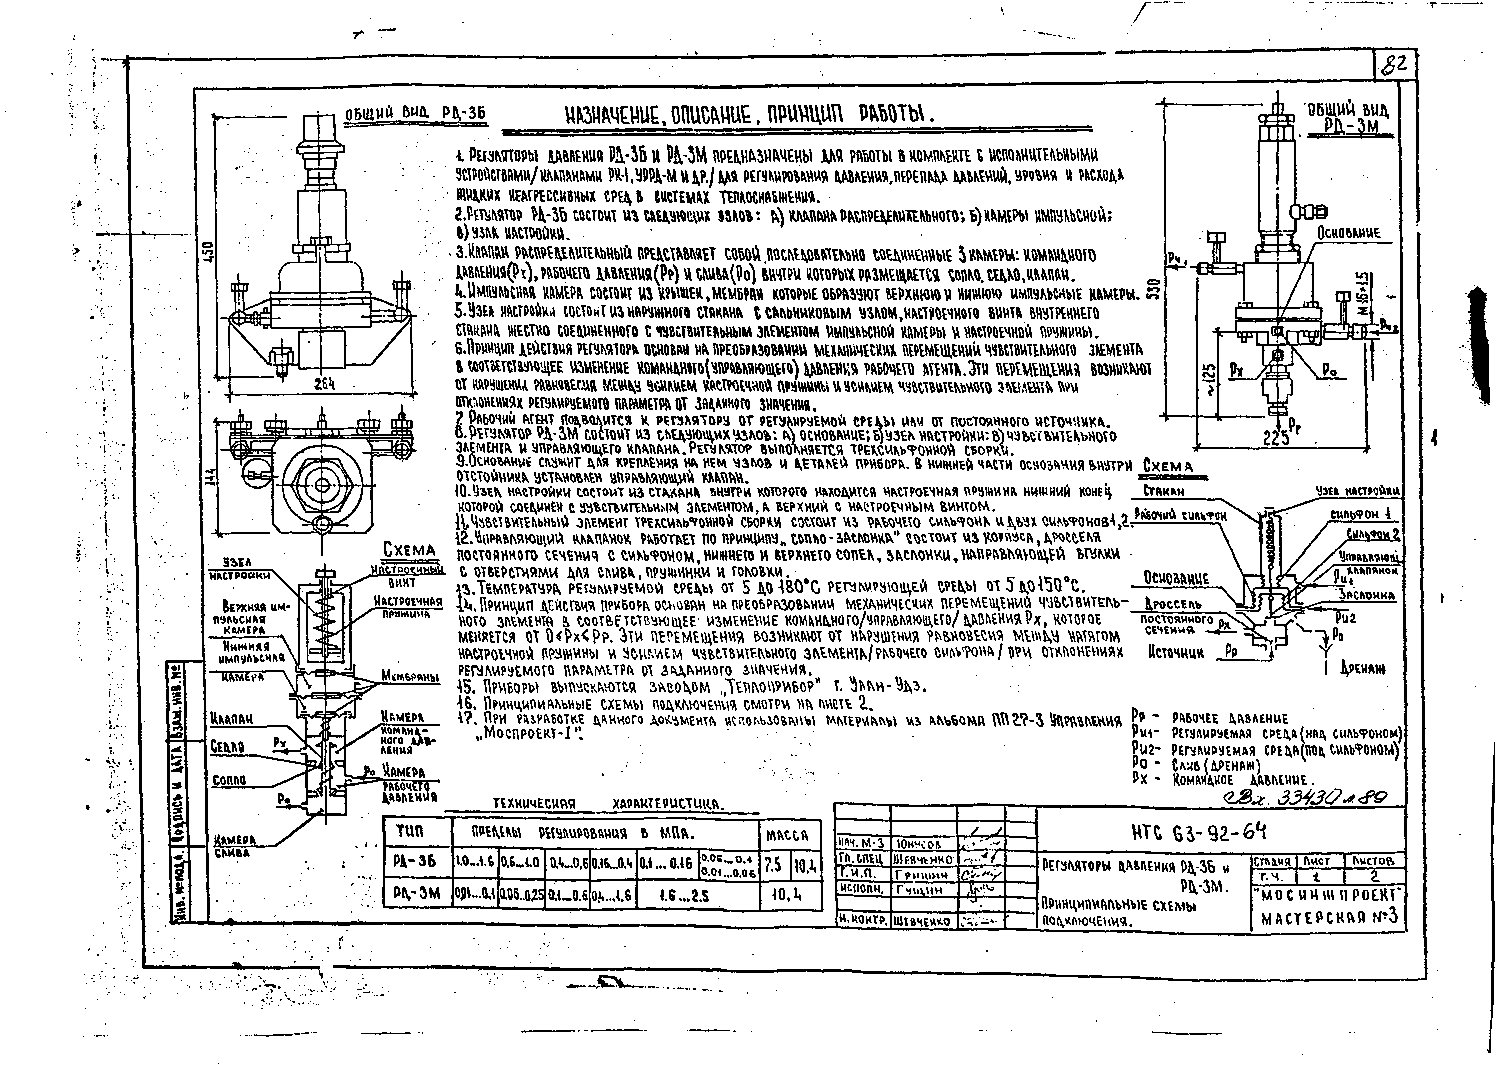 82
ОБЩИЙ ВИД РД-3Б
НАЗНАЧЕНИЕ, ОПИСАНИЕ, ПРИНЦИП РАБОТЫ.
ОБЩИЙ ВИД
РД-3М
1. РЕГУЛЯТОРЫ ДАВЛЕНИЯ РД-3Б И РД-3М ПРЕДНАЗНАЧЕНЫ ДЛЯ РАБОТЫ В КОМПЛЕКТЕ С ИСПОЛНИТЕЛЬНЫМИ
УСТРОЙСТВАМИ/КЛАПАНАМИ РК-1, УРРД-М И ДР./ ДЛЯ РЕГУЛИРОВАНИЯ ДАВЛЕНИЯ, ПЕРЕПАДА ДАВЛЕНИЙ, УРОВНЯ И РАСХОДА
ЖИДКИХ НЕАГРЕССИВНЫХ СРЕД В СИСТЕМАХ ТЕПЛОСНАБЖЕНИЯ.
2. РЕГУЛЯТОР РД-3Б СОСТОИТ ИЗ СЛЕДУЮЩИХ УЗЛОВ: А) КЛАПАНА РАСПРЕДЕЛИТЕЛЬНОГО; Б) КАМЕРЫ ИМПУЛЬСНОЙ;
В) УЗЛА НАСТРОЙКИ.
3. КЛАПАН РАСПРЕДЕЛИТЕЛЬНЫЙ ПРЕДСТАВЛЯЕТ СОБОЙ ПОСЛЕДОВАТЕЛЬНО СОЕДИНЕННЫЕ 3 КАМЕРЫ: КОМАНДНОГО
ДАВЛЕНИЯ(Рх), РАБОЧЕГО ДАВЛЕНИЯ(Рр) И СЛИВА(Ро) ВНУТРИ КОТОРЫХ РАЗМЕЩАЕТСЯ СОПЛО, СЕДЛО, КЛАПАН.
4. ИМПУЛЬСНАЯ КАМЕРА СОСТОИТ ИЗ КРЫШЕК, МЕМБРАН КОТОРЫЕ ОБРАЗУЮТ ВЕРХНЮЮ И НИЖНЮЮ ИМПУЛЬСНЫЕ КАМЕРЫ.
5. УЗЕЛ НАСТРОЙКИ СОСТОИТ ИЗ НАРУЖНОГО СТАКАНА С САЛЬНИКОВЫМ УЗЛОМ, НАСТРОЕЧНОГО ВИНТА ВНУТРЕННЕГО
СТАКАНА ЖЕСТКО СОЕДИНЕННОГО С ЧУВСТВИТЕЛЬНЫМ ЭЛЕМЕНТОМ ИМПУЛЬСНОЙ КАМЕРЫ И НАСТРОЕЧНОЙ ПРУЖИНЫ.
6. ПРИНЦИП ДЕЙСТВИЯ РЕГУЛЯТОРА ОСНОВАН НА ПРЕОБРАЗОВАНИИ МЕХАНИЧЕСКИХ ПЕРЕМЕЩЕНИЙ ЧУВСТВИТЕЛЬНОГО ЭЛЕМЕНТА
В СООТВЕТСТВУЮЩЕЕ ИЗМЕНЕНИЕ КОМАНДНОГО(УПРАВЛЯЮЩЕГО) ДАВЛЕНИЯ РАБОЧЕГО АГЕНТА. ЭТИ ПЕРЕМЕЩЕНИЯ ВОЗНИКАЮТ
ОТ НАРУШЕНИЯ РАВНОВЕСИЯ МЕЖДУ УСИЛИЕМ НАСТРОЕЧНОЙ ПРУЖИНЫ И УСИЛИЕМ ЧУВСТВИТЕЛЬНОГО ЭЛЕМЕНТА ПРИ
ОТКЛОНЕНИЯХ РЕГУЛИРУЕМОГО ПАРАМЕТРА ОТ ЗАДАННОГО ЗНАЧЕНИЯ.
7. РАБОЧИЙ АГЕНТ ПОДВОДИТСЯ К РЕГУЛЯТОРУ ОТ РЕГУЛИРУЕМОЙ СРЕДЫ ИЛИ ОТ ПОСТОЯННОГО ИСТОЧНИКА.
8. РЕГУЛЯТОР РД-3М СОСТОИТ ИЗ СЛЕДУЮЩИХ УЗЛОВ: А) ОСНОВАНИЕ; Б) УЗЕЛ НАСТРОЙКИ: В) ЧУВСТВИТЕЛЬНОГО
ЭЛЕМЕНТА И УПРАВЛЯЮЩЕГО КЛАПАНА. РЕГУЛЯТОР ВЫПОЛНЯЕТСЯ ТРЕХСИЛЬФОННОЙ СБОРКИ.
9. ОСНОВАНИЕ СЛУЖИТ ДЛЯ КРЕПЛЕНИЯ НА НЕМ УЗЛОВ И ДЕТАЛЕЙ ПРИБОРА. В НИЖНЕЙ ЧАСТИ ОСНОВАНИЯ ВНУТРИ
ОТСТОЙНИКА УСТАНОВЛЕН УПРАВЛЯЮЩИЙ КЛАПАН.
10. УЗЕЛ НАСТРОЙКИ СОСТОИТ ИЗ СТАКАНА ВНУТРИ КОТОРОГО НАХОДИТСЯ НАСТРОЕЧНАЯ ПРУЖИНА НИЖНИЙ КОНЕЦ
КОТОРОЙ СОЕДИНЕН С ЧУВСТВИТЕЛЬНЫМ ЭЛЕМЕНТОМ, А ВЕРХНИЙ С НАСТРОЕЧНЫМ ВИНТОМ.
11. ЧУВСТВИТЕЛЬНЫЙ ЭЛЕМЕНТ ТРЕХСИЛЬФОННОЙ СБОРКИ СОСТОИТ ИЗ РАБОЧЕГО СИЛЬФОНА И ДВУХ СИЛЬФОНОВ 1, 2.
12. УПРАВЛЯЮЩИЙ КЛАПАНОК РАБОТАЕТ ПО ПРИНЦИПУ „СОПЛО-ЗАСЛОНКА" СОСТОИТ ИЗ КОРПУСА, ДРОССЕЛЯ
ПОСТОЯННОГО СЕЧЕНИЯ С СИЛЬФОНОМ, НИЖНЕГО И ВЕРХНЕГО СОПЕЛ, ЗАСЛОНКИ, НАПРАВЛЯЮЩЕЙ ВТУЛКИ
С ОТВЕРСТИЯМИ ДЛЯ СЛИВА, ПРУЖИНКИ И ГОЛОВКИ.
13. ТЕМПЕРАТУРА РЕГУЛИРУЕМОЙ СРЕДЫ ОТ 5 ДО 180°С РЕГУЛИРУЮЩЕЙ СРЕДЫ ОТ 5 ДО 150°С.
14. ПРИНЦИП ДЕЙСТВИЯ ПРИБОРА ОСНОВАН НА ПРЕОБРАЗОВАНИИ МЕХАНИЧЕСКИХ ПЕРЕМЕЩЕНИЙ ЧУВСТВИТЕЛЬ-
НОГО ЭЛЕМЕНТА В СООТВЕТСТВУЮЩЕЕ ИЗМЕНЕНИЕ КОМАНДНОГО/УПРАВЛЯЮЩЕГО/ ДАВЛЕНИЯ Рх, КОТОРОЕ
МЕНЯЕТСЯ ОТ 0<Рх<Рр. ЭТИ ПЕРЕМЕЩЕНИЯ ВОЗНИКАЮТ ОТ НАРУШЕНИЯ РАВНОВЕСИЯ МЕЖДУ НАТЯГОМ
НАСТРОЕЧНОЙ ПРУЖИНЫ И УСИЛИЕМ ЧУВСТВИТЕЛЬНОГО ЭЛЕМЕНТА/РАБОЧЕГО СИЛЬФОНА/ ПРИ ОТКЛОНЕНИЯХ
РЕГУЛИРУЕМОГО ПАРАМЕТРА ОТ ЗАДАННОГО ЗНАЧЕНИЯ.
15. ПРИБОРЫ ВЫПУСКАЮТСЯ ЗАВОДОМ „ТЕПЛОПРИБОР" Г. УЛАН-УДЭ.
16. ПРИНЦИПИАЛЬНЫЕ СХЕМЫ ПОДКЛЮЧЕНИЯ СМОТРИ НА ЛИСТЕ 2.
17. ПРИ РАЗРАБОТКЕ ДАННОГО ДОКУМЕНТА ИСПОЛЬЗОВАНЫ МАТЕРИАЛЫ ИЗ АЛЬБОМА ПП 27-3 УПРАВЛЕНИЯ
„МОСПРОЕКТ-1".
450
264
144
СХЕМА
УЗЕЛ
НАСТРОЙКИ
НАСТРОЕЧНЫЙ
ВИНТ
НАСТРОЕЧНАЯ
ПРУЖИНА
ВЕРХНЯЯ ИМ-
ПУЛЬСНАЯ
КАМЕРА
НИЖНЯЯ
ИМПУЛЬСНАЯ
КАМЕРА
МЕМБРАНЫ
КЛАПАН
СЕДЛО
СОПЛО
Рх
Ро
КАМЕРА
КОМАНД-
НОГО ДАВ-
ЛЕНИЯ
КАМЕРА
РАБОЧЕГО
ДАВЛЕНИЯ
КАМЕРА
СЛИВА
ОСНОВАНИЕ
330
М 16×1.5
~125
Рх
Ро
Рр
225
СХЕМА
СТАКАН
УЗЕЛ НАСТРОЙКИ
РАБОЧИЙ СИЛЬФОН
СИЛЬФОН 1
СИЛЬФОН 2
УПРАВЛЯЮЩ.
КЛАПАНОК
Ри1
ОСНОВАНИЕ
ЗАСЛОНКА
ДРОССЕЛЬ
ПОСТОЯННОГО
СЕЧЕНИЯ
Рх
Ри2
Ро
ИСТОЧНИК
Рр
ДРЕНАЖ
Рр - РАБОЧЕЕ ДАВЛЕНИЕ
Ри1- РЕГУЛИРУЕМАЯ СРЕДА(НАД СИЛЬФОНОМ)
Ри2- РЕГУЛИРУЕМАЯ СРЕДА(ПОД СИЛЬФОНОМ)
Ро - СЛИВ(ДРЕНАЖ)
Рх - КОМАНДНОЕ ДАВЛЕНИЕ.
Вх. 33430 л 89
ТЕХНИЧЕСКАЯ ХАРАКТЕРИСТИКА.
ТИП ПРЕДЕЛЫ РЕГУЛИРОВАНИЯ В МПА. МАССА
РД-3Б 1.0...1.6 0,6...1.0 0,4...0,6 0,16...0,4 0.1...0.16 0.06...0.1 0.01...0.06 7.5 10.4
РД-3М 0,01...0,1 0.06..0,25 0,1...0,6 0,4...1.6 1.6...2.5 10,4
НАЧ. М-3 ЮНУСОВ
ГЛ. СПЕЦ ШЕВЧЕНКО
Г. И. П. ГРИЦИН
ИСПОЛН.
Н. КОНТР. ШЕВЧЕНКО
НТС 63-92-64
РЕГУЛЯТОРЫ ДАВЛЕНИЯ РД-3Б И
РД-3М.
ПРИНЦИПИАЛЬНЫЕ СХЕМЫ
ПОДКЛЮЧЕНИЯ.
СТАДИЯ ЛИСТ ЛИСТОВ
Т. Ч. 1 2
"МОСИНЖПРОЕКТ"
МАСТЕРСКАЯ №3
ИНВ. №ПОДЛ. ПОДПИСЬ И ДАТА ВЗАМ. ИНВ. №